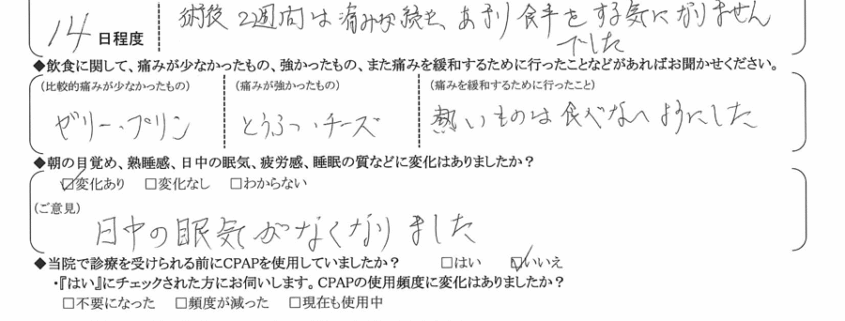 14 日程度 術後 2週間は痛みが続き、あまり食事をする気になりません
でした
◆飲食に関して、痛みが少なかったもの、強かったもの、また痛みを緩和するために行ったことなどがあればお聞かせください。
(比較的痛みが少なかったもの) (痛みが強かったもの) (痛みを緩和するために行ったこと)
ゼリー・プリン とうふ・チーズ 熱いものは食べないようにした
◆朝の目覚め、熟睡感、日中の眠気、疲労感、睡眠の質などに変化はありましたか？
☑変化あり □変化なし □わからない
(ご意見)
日中の眠気がなくなりました
◆当院で診療を受けられる前にCPAPを使用していましたか？ □はい ☑いいえ
・『はい』にチェックされた方にお伺いします。CPAPの使用頻度に変化はありましたか？
□不要になった □頻度が減った □現在も使用中